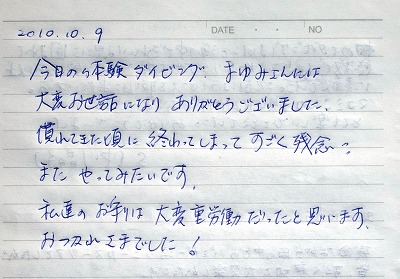 DATE ・ ・ NO
2010.10.9
今日の体験ダイビング、まゆみさんには
大変お世話になり ありがとうございました。
慣れてきた頃に 終わってしまって すごく残念…?
また やってみたいです。
私達の お守りは 大変重労働だったと思います。
おつかれさまでした!